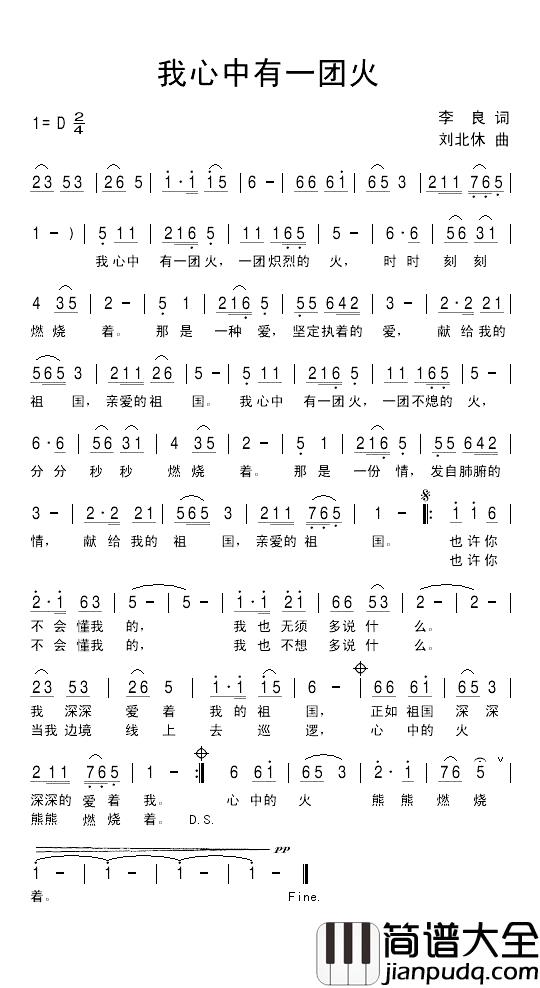 我心中有一团火
1=D 2/4
李 良 词
刘北休 曲
23 53 | 26 5 | 1·1 15 | 6 - | 66 61 | 65 3 | 211 765 |
1 - ) | 5 11 | 216 5 | 11 165 | 5 - | 6·6 | 56 31 |
我心中 有一团火，一团炽烈的 火， 时 时 刻 刻
4 35 | 2 - | 5 1 | 216 5 | 55 642 | 3 - | 2·2 21 |
燃 烧 着。 那 是 一种 爱，坚定执着的 爱， 献 给我的
565 3 | 211 26 | 5 - | 5 11 | 216 5 | 11 165 | 5 - |
祖 国，亲爱的祖 国。 我心中 有一团火，一团不熄的 火，
6·6 | 56 31 | 4 35 | 2 - | 5 1 | 216 5 | 55 642 |
分 分 秒 秒 燃 烧 着。 那 是 一份 情，发自肺腑的
3 - | 2·2 21 | 565 3 | 211 765 | 1 - 𝄋 ‖: 1 1 6 |
情， 献 给 我的 祖 国，亲爱的 祖 国。 也 许 你
也 许 你
2·1 63 | 5 - | 5 - | 1·1 21 | 66 53 | 2 - | 2 - |
不 会 懂我 的， 我 也 无须 多说 什 么。
不 会 懂我 的， 我 也 不想 多说 什 么。
23 53 | 26 5 | 1·1 15 | 6 - 𝄌 | 66 61 | 65 3 |
我 深深 爱 着 我 的 祖 国， 正如 祖国 深 深
当我 边境 线 上 去 巡 逻， 心 中的 火
211 765 | 1 - 𝄌 :‖ 6 61 | 65 3 | 2·1 | 76 5 ∨ |
深深的 爱 着 我。 心 中的 火 熊 熊 燃 烧
熊熊 燃烧 着。 D.S.
pp
1 - | 1 - | 1 - | 1 - ‖
着。 Fine.
简谱大全
jianpudq.com